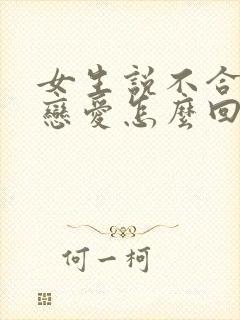 女生説不合
戀愛怎麼回
何一柯